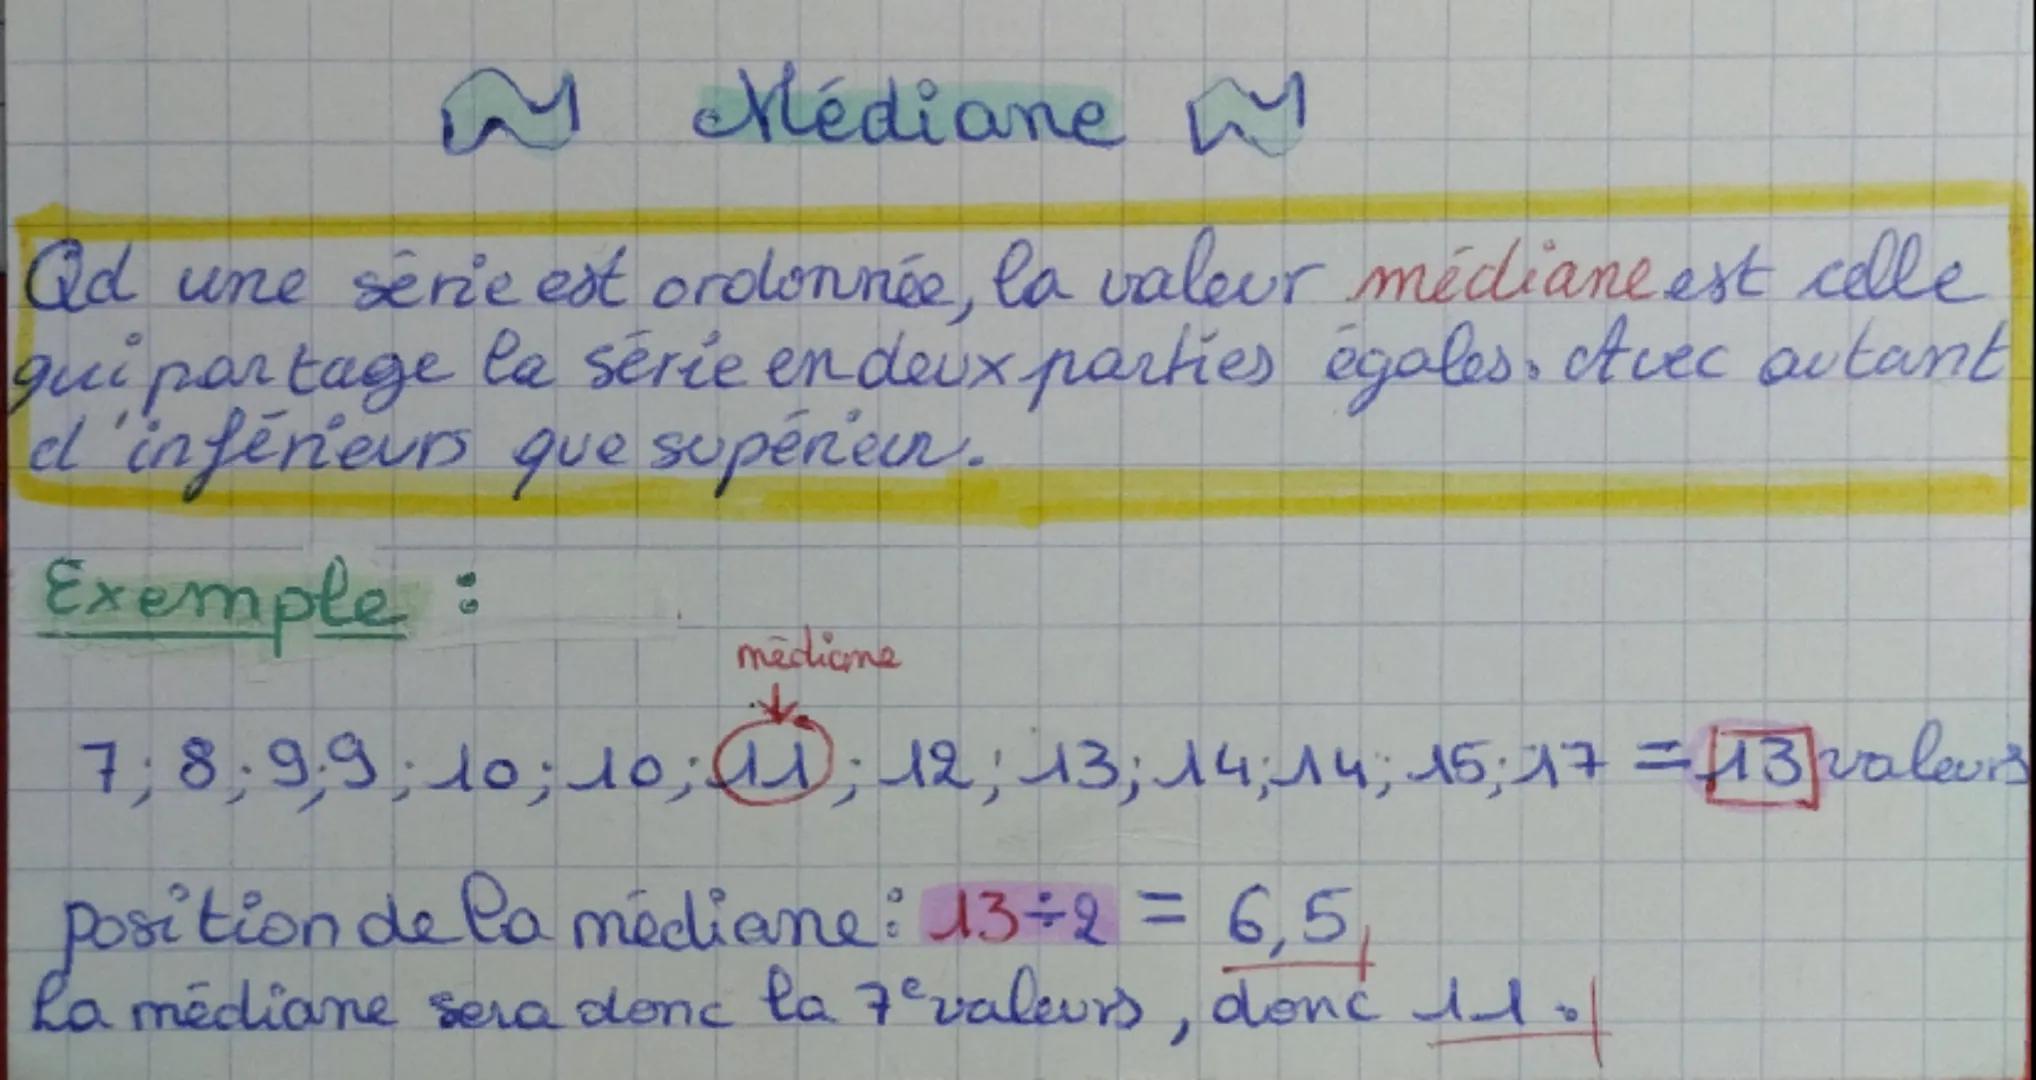 Médiane
Qd une série est ordonnée, la valeur médiane est celle
qui partage la série en deux parties égales. Avec autant
d'inférieurs que supérieur.
Exemple :
médiane
7; 8; 9; 9; 10; 10; 11; 12; 13; 14; 14; 15; 17 = 13 valeurs
position de la médiane : 13÷2 = 6,5
La médiane sera donc la 7e valeurs, donc 11.